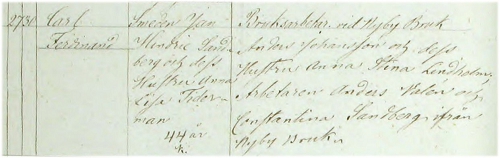 27 30 Carl
Ferdinand
Smeden Jan
Hendric Sand
berg och dess
Hustru Anna
Lisa Tider-
man
44 år
k.
Bruksarbetar. vid Nyby Bruk
Anders Johansson och dess
Hustru Anna Stina Lindholm,
Arbetaren Anders Valen och
Constantina Sandberg ifrån
Nyby Bruk